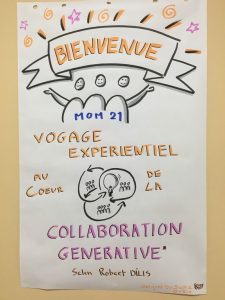 BIENVENUE
MOM 21
VOYAGE
EXPERIENTIEL
AU DE
COEUR LA
COLLABORATION
GENERATIVE*
Selon Robert DILTS